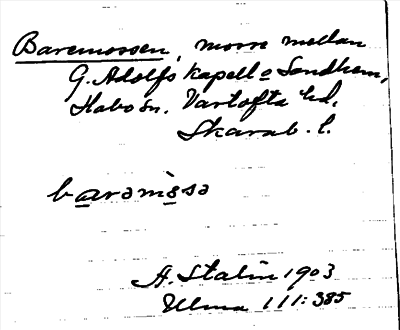 Baremossen, mosse mellan
G. Adolfs kapell o Sandhem,
Habo sn. Vartofta hd,
Skarab. l.
A. Stalin 1903
111:385